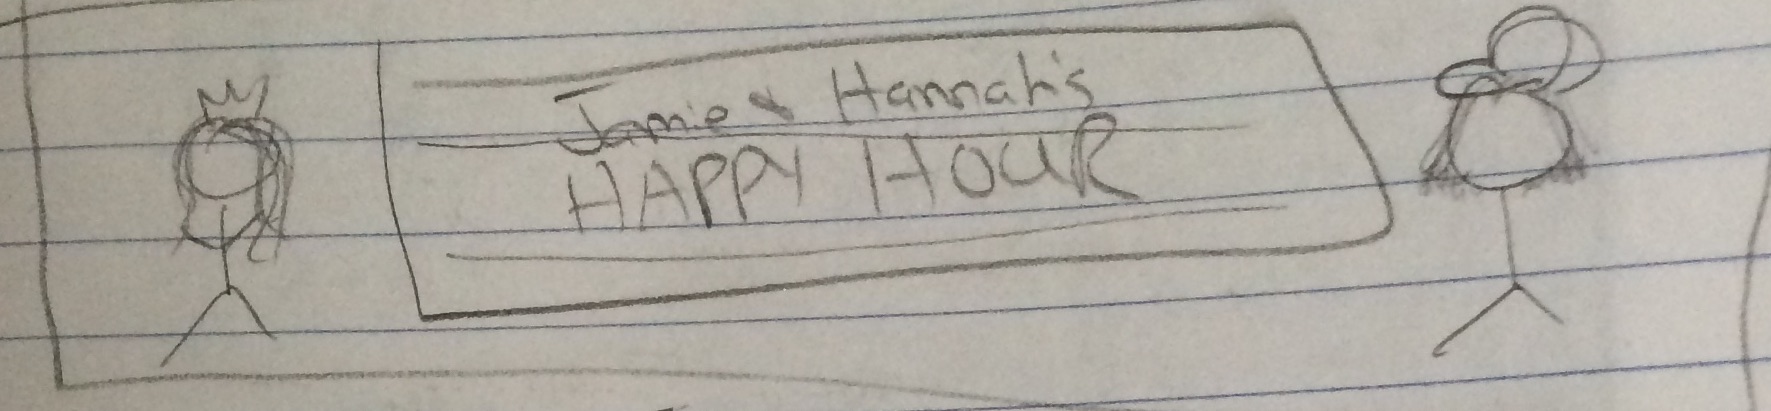 Jamie & Hannah's
HAPPY HOUR